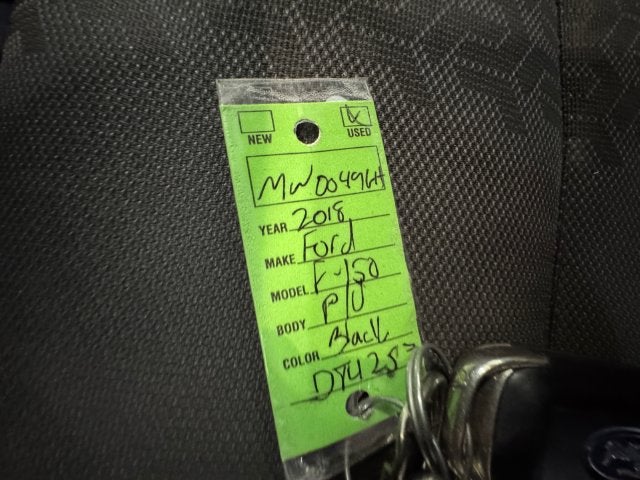 NEW USED
MW00496A
YEAR 2018
MAKE Ford
MODEL F-150
BODY P/U
COLOR Black